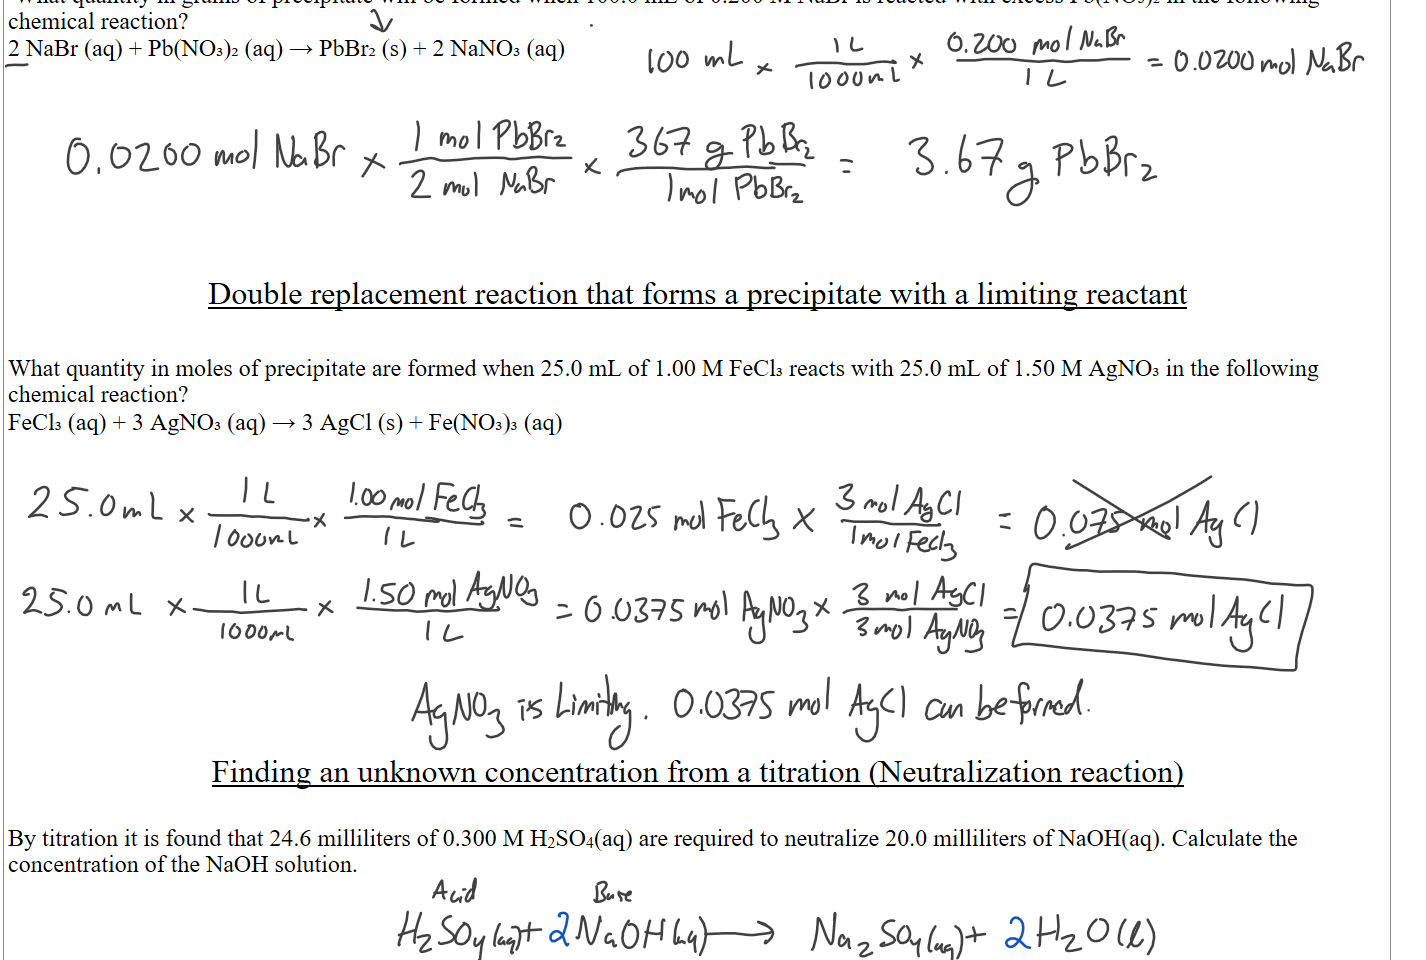 What quantity in grams of precipitate will be formed when 100.0 mL of 0.200 M NaBr is reacted with excess Pb(NO₃)₂ in the following
chemical reaction?
2 NaBr (aq) + Pb(NO₃)₂ (aq) → PbBr₂ (s) + 2 NaNO₃ (aq)
100 mL × 1 L / 1000mL × 0.200 mol NaBr / 1 L = 0.0200 mol NaBr
0.0200 mol NaBr × 1 mol PbBr₂ / 2 mol NaBr × 367 g PbBr₂ / 1 mol PbBr₂ = 3.67 g PbBr₂
Double replacement reaction that forms a precipitate with a limiting reactant
What quantity in moles of precipitate are formed when 25.0 mL of 1.00 M FeCl₃ reacts with 25.0 mL of 1.50 M AgNO₃ in the following
chemical reaction?
FeCl₃ (aq) + 3 AgNO₃ (aq) → 3 AgCl (s) + Fe(NO₃)₃ (aq)
25.0mL × 1 L / 1000mL × 1.00 mol FeCl₃ / 1 L = 0.025 mol FeCl₃ × 3 mol AgCl / 1 mol FeCl₃ = 0.075 mol AgCl
25.0 mL × 1L / 1000mL × 1.50 mol AgNO₃ / 1 L = 0.0375 mol AgNO₃ × 3 mol AgCl / 3 mol AgNO₃ = 0.0375 mol AgCl
AgNO₃ is Limiting. 0.0375 mol AgCl can be formed.
Finding an unknown concentration from a titration (Neutralization reaction)
By titration it is found that 24.6 milliliters of 0.300 M H₂SO₄(aq) are required to neutralize 20.0 milliliters of NaOH(aq). Calculate the
concentration of the NaOH solution.
Acid Base
H₂SO₄(aq) + 2NaOH(aq) → Na₂SO₄(aq) + 2H₂O(l)